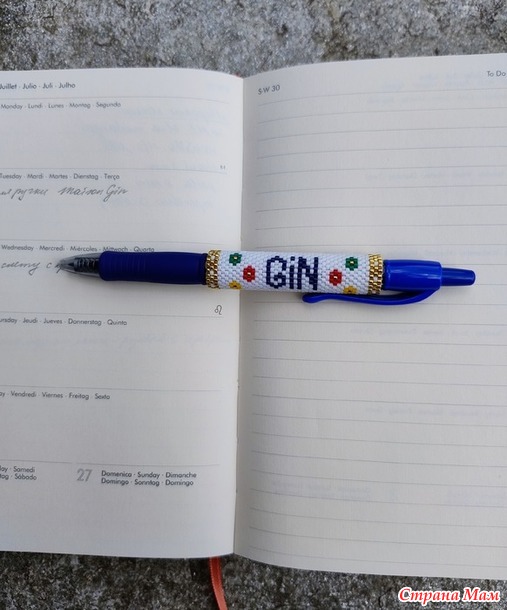 Juillet · Julio · Juli · Julho
Monday · Lundi · Lunes · Montag · Segunda
Tuesday · Mardi · Martes · Dienstag · Terça
ручки Maison Gin
Wednesday · Mercredi · Miércoles · Mittwoch · Quarta
Thursday · Jeudi · Jueves · Donnerstag · Quinta
Vendredi · Viernes · Freitag · Sexta
Samedi
Sábado
27 Domenica · Sunday · Dimanche
Domingo · Sonntag · Domingo
S·W 30
To Do
GiN
Страна Мам